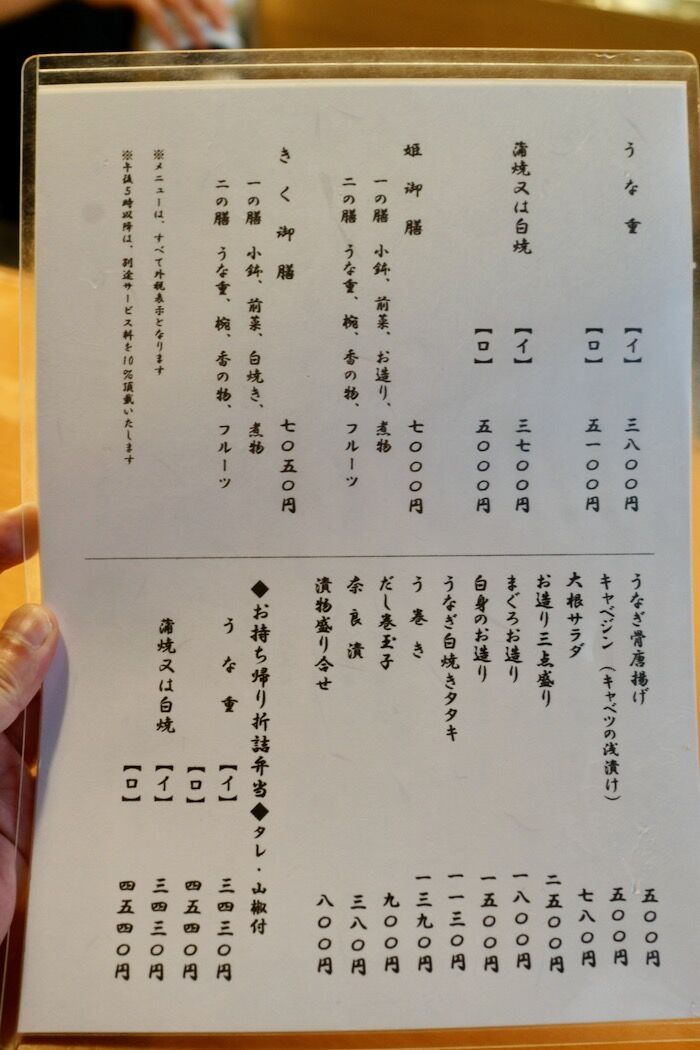 うな重 【イ】 三八〇〇円
【ロ】 五一〇〇円
蒲焼又は白焼 【イ】 三七〇〇円
【ロ】 五〇〇〇円
姫御膳 七〇〇〇円
一の膳 小鉢、前菜、お造り、煮物
二の膳 うな重、椀、香の物、フルーツ
きく御膳 七〇五〇円
一の膳 小鉢、前菜、白焼き、煮物
二の膳 うな重、椀、香の物、フルーツ
※メニューは、すべて外税表示となります
※午後5時以降は、別途サービス料を10%頂戴いたします
うなぎ骨唐揚げ 五〇〇円
キャベジン(キャベツの浅漬け) 五〇〇円
大根サラダ 七八〇円
お造り三点盛り 二五〇〇円
まぐろお造り 一八〇〇円
白身のお造り 一五〇〇円
うなぎ白焼きタタキ 一一三〇円
う巻き 一三九〇円
だし巻玉子 九〇〇円
奈良漬 三八〇円
漬物盛り合せ 八〇〇円
◆お持ち帰り折詰弁当◆タレ・山椒付
うな重 【イ】 三四三〇円
【ロ】 四五四〇円
蒲焼又は白焼 【イ】 三四三〇円
【ロ】 四五四〇円